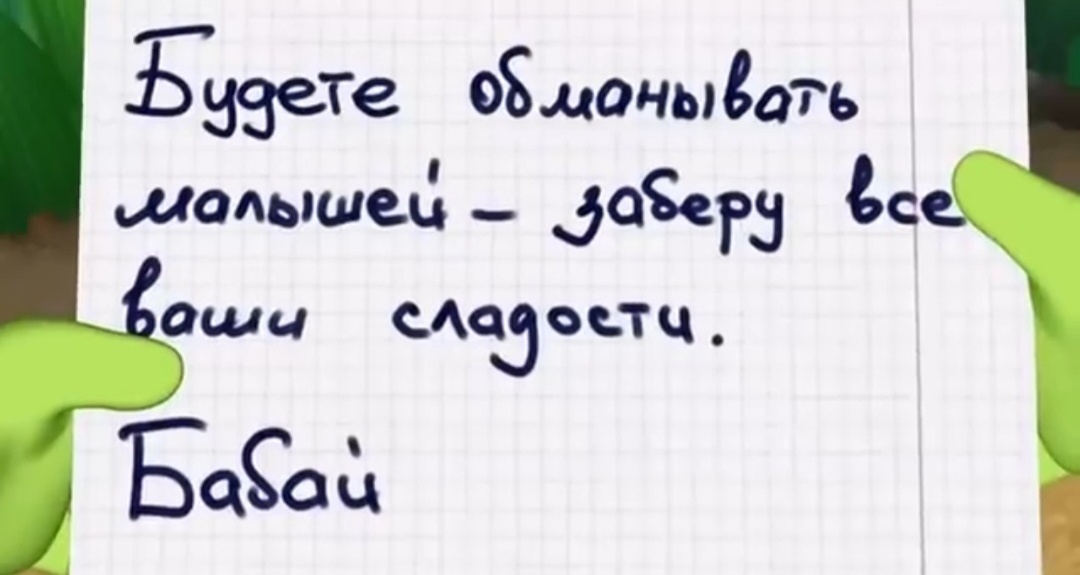 Будете обманывать
малышей – заберу все
ваши сладости.
Бабай